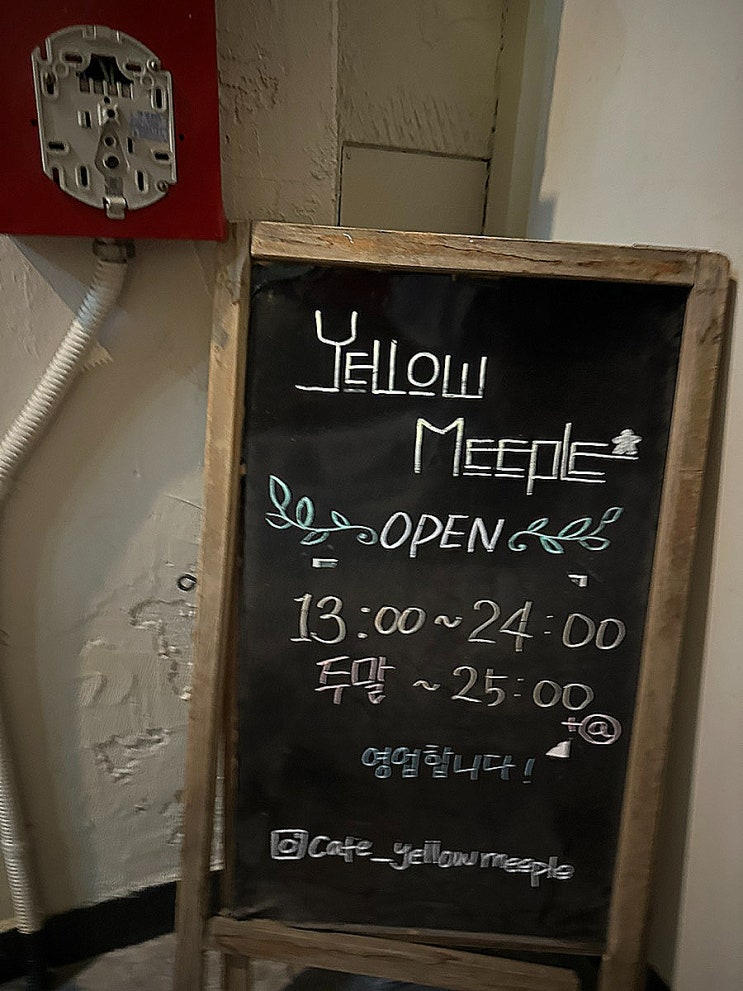 Yellow
Meeple
OPEN
13:00 ~ 24:00
주말 ~ 25:00
+@
영업합니다!
cafe_yellowmeeple